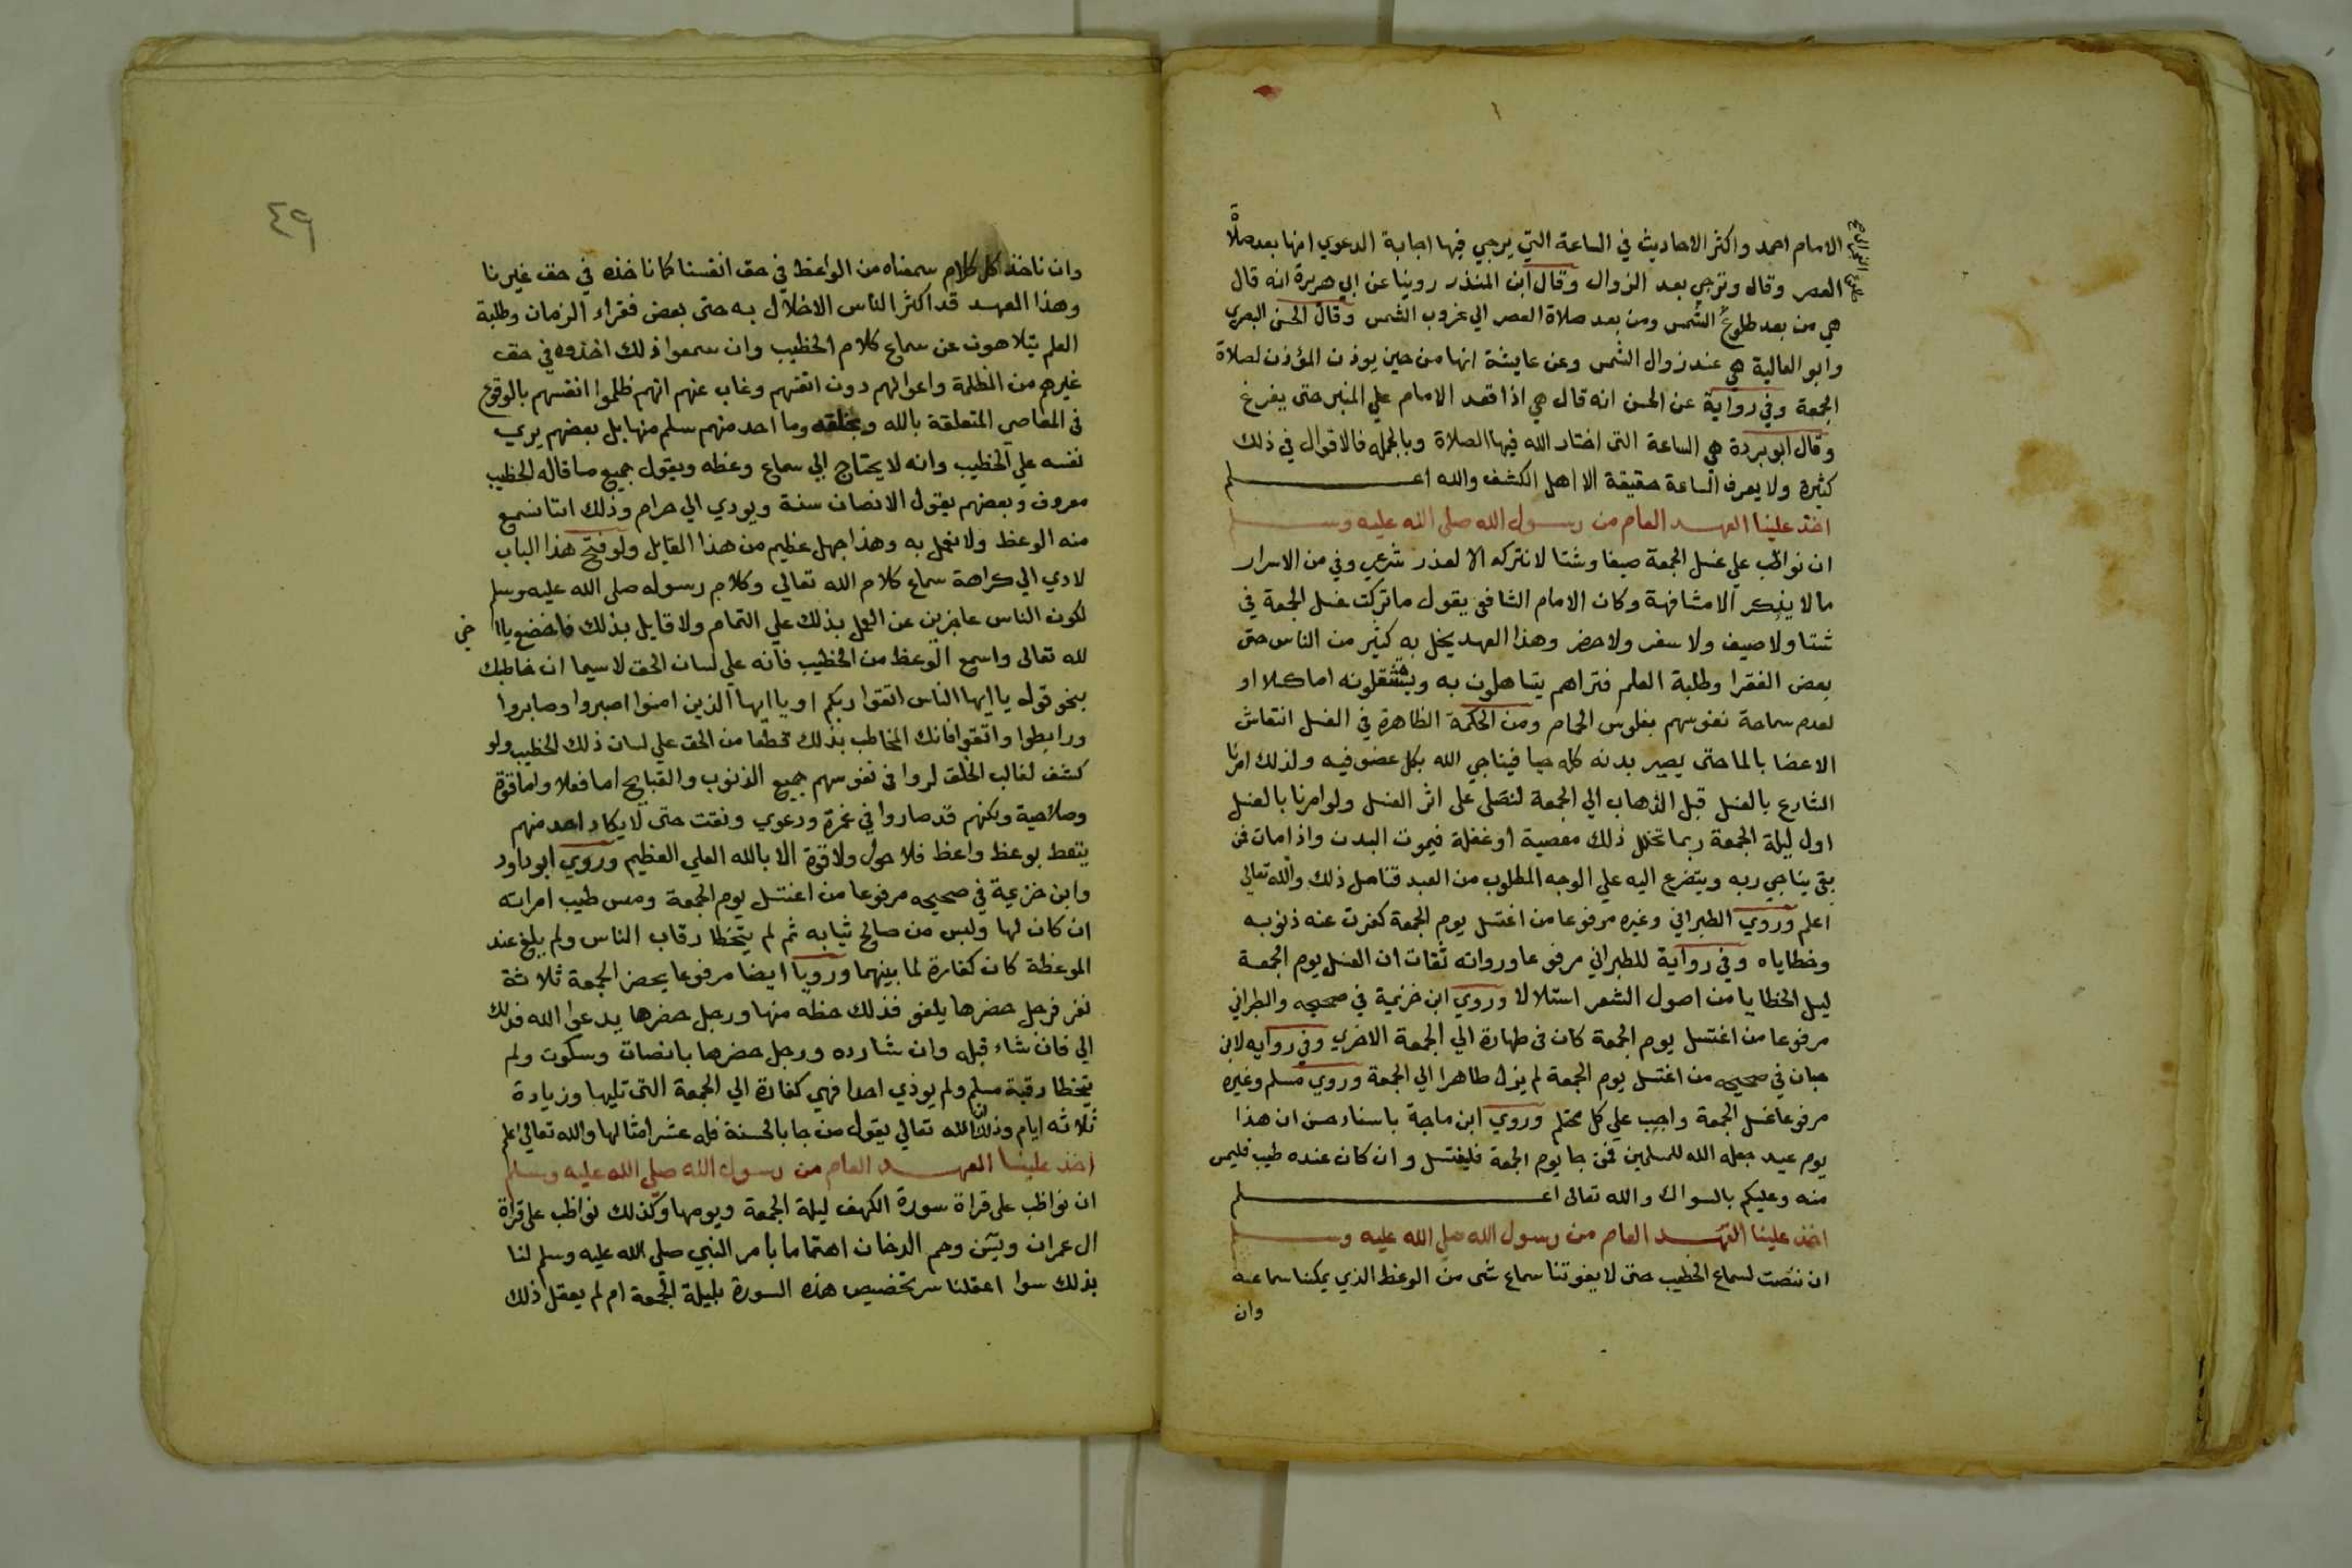 الامام احمد واكثر الاحاديث في الساعة التي يرجي فيها اجابة الدعوي انها بعد صلاة
العصر وقال وترجي بعد الزوال وقال ابن المنذر روينا عن ابي هريرة انه قال
هي من بعد طلوع الشمس ومن بعد صلاة العصر الي غروب الشمس وقال الحسن البصري
وابو العالية هي عند زوال الشمس وعن عايشة انها من حين يوذن المؤذن لصلاة
الجمعة وفي رواية عن الحسن انه قال هي اذا قعد الامام علي المنبر حتى يفرغ
وقال ابو بردة هي الساعة التى اختار الله فيها الصلاة وبالجمله فالاقوال في ذلك
كثيرة ولا يعرف الساعة حقيقة الا اهل الكشف والله اعلم
اخذ علينا العهد العام من رسول الله صلى الله عليه وسلم
ان نواظب علي غسل الجمعة صيفا وشتا لا نتركه الا لعذر شرعي وفي من الاسرار
ما لا يذكر الا مشافهة وكان الامام الشافعي يقول ما تركت غسل الجمعة في
شتا ولا صيف ولا سفر ولا حضر وهذا العهد يخل به كثير من الناس حتى
بعض الفقرا وطلبة العلم فتراهم يتساهلون به ويستثقلونه اما كسلا او
لعدم سماحة نفوسهم بفلوس الحمام ومن الحكمة الظاهرة في الغسل انتعاش
الاعضا بالما حتى يصير بدنه كله حيا فيناجي الله بكل عضو فيه ولذلك امرنا
الشارع بالغسل قبل الذهاب الي الجمعة لنصلى على اثر الغسل ولو امرنا بالغسل
اول ليلة الجمعة ربما تخلل ذلك معصية او غفلة فيموت البدن واذا مات فمن
بقى يناجي ربه ويتضرع اليه علي الوجه المطلوب من العبد فتامل ذلك والله تعالى
اعلم وروي الطبراني وغيره مرفوعا من اغتسل يوم الجمعة كفرت عنه ذنوبه
وخطاياه وفي رواية للطبراني مرفوعا ورواته ثقات ان الغسل يوم الجمعة
ليسل الخطايا من اصول الشعر استلالا وروي ابن خزيمة في صحيحه والطبراني
مرفوعا من اغتسل يوم الجمعة كان فى طهارة الي الجمعة الاخري وفي روايه لابن
حبان في صحيحه من اغتسل يوم الجمعة لم يزل طاهرا الي الجمعة وروي مسلم وغيره
مرفوعا غسل الجمعة واجب علي كل محتلم وروي ابن ماجة باسناد حسن ان هذا
يوم عيد جعله الله للمسلمين فمن جا يوم الجمعة فليغتسل وان كان عنده طيب فليمس
منه وعليكم بالسواك والله تعالى اعلم
اخذ علينا العهد العام من رسول الله صلي الله عليه وسلم
ان ننصت لسماع الخطيب حتى لا يفوتنا سماع شى من الوعظ الذي يمكننا سماعه
وان
٤٩
وان ناخذ كل كلام سمعناه من الواعظ في حق انفسنا كما ناخذه في حق غيرنا
وهذا العهد قد اكثر الناس الاخلال به حتى بعض فقراء الزمان وطلبة
العلم يتلاهون عن سماع كلام الخطيب وان سمعوا ذلك اخذوه في حق
غيرهم من الظلمة واعوانهم دون انفسهم وغاب عنهم انهم ظلموا انفسهم بالوقوع
فى المعاصي المتعلقة بالله وبخلقه وما احد منهم سلم منها بل بعضهم يري
نفسه علي الخطيب وانه لا يحتاج الي سماع وعظه ويقول جميع ما قاله الخطيب
معروف وبعضهم يقول الانصات سنة ويودي الي حرام وذلك اننا نسمع
منه الوعظ ولا نعمل به وهذا جهل عظيم من هذا القايل ولو فتح هذا الباب
لادي الي كراهة سماع كلام الله تعالي وكلام رسوله صلى الله عليه وسلم
لكون الناس عاجزين عن العمل بذلك علي التمام ولا قايل بذلك فاخضع يا اخي
لله تعالى واسمع الوعظ من الخطيب فانه علي لسان الحق لا سيما ان خاطبك
بنحو قوله يا ايها الناس اتقوا ربكم او يا ايها الذين امنوا اصبروا وصابروا
ورابطوا واتقوا فانك المخاطب بذلك قطعا من الحق علي لسان ذلك الخطيب ولو
كشف لغالب الخلق لروا فى نفوسهم جميع الذنوب والقبايح اما فعلا واما قوة
وصلاحية ولكنهم قد صاروا في غمرة ودعوي ونفت حتى لا يكاد احد منهم
يتعظ بوعظ واعظ فلا حول ولا قوة الا بالله العلي العظيم وروي ابو داود
وابن خزيمة في صحيحه مرفوعا من اغتسل يوم الجمعة ومس طيب امراته
ان كان لها ولبس من صالح ثيابه ثم لم يتخطا رقاب الناس ولم يلغ عند
الموعظة كان كفارة لما بينهما ورويا ايضا مرفوعا يحضر الجمعة ثلاثة
نفر فرجل حضرها يلغو فذلك حظه منها ورجل حضرها يدعوا الله فذلك
الي فان شاء قبله وان شا رده ورجل حضرها بانصات وسكوت ولم
يتخطا رقبة مسلم ولم يوذي احدا فهي كفارة الي الجمعة التى تليها وزيادة
ثلاثه ايام وذلك ان الله تعالي يقول من جا بالحسنة فله عشر امثالها والله تعالى اعلم
اخذ علينا العهد العام من رسول الله صلي الله عليه وسلم
ان نواظب على قراة سورة الكهف ليلة الجمعة ويومها وكذلك نواظب على قراة
ال عمران ويس وحم الدخان اهتماما بامر النبي صلى الله عليه وسلم لنا
بذلك سوا اعقلنا سر تخصيص هذه السورة بليلة الجمعة ام لم يعقل ذلك